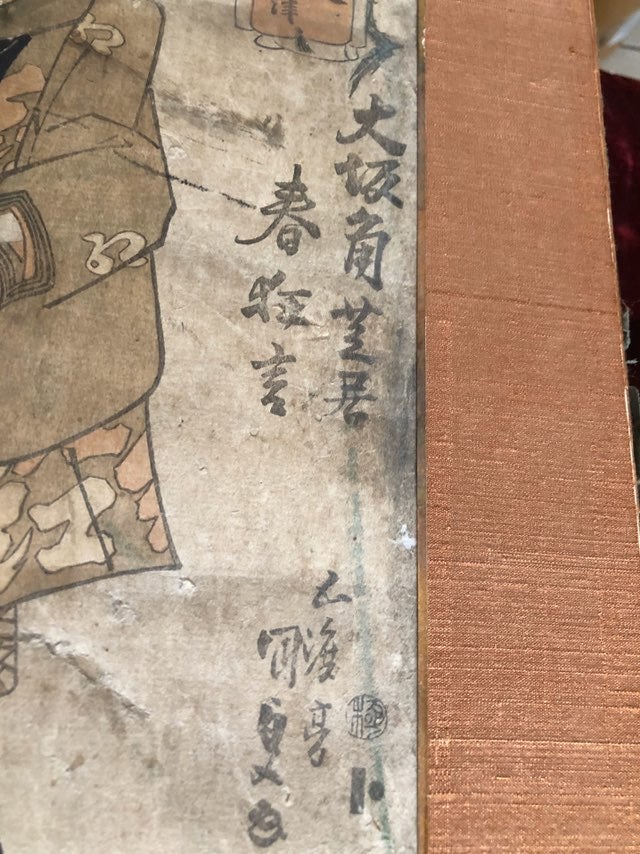 津
大坂角芝居
春狂言
五渡亭
國貞画
極